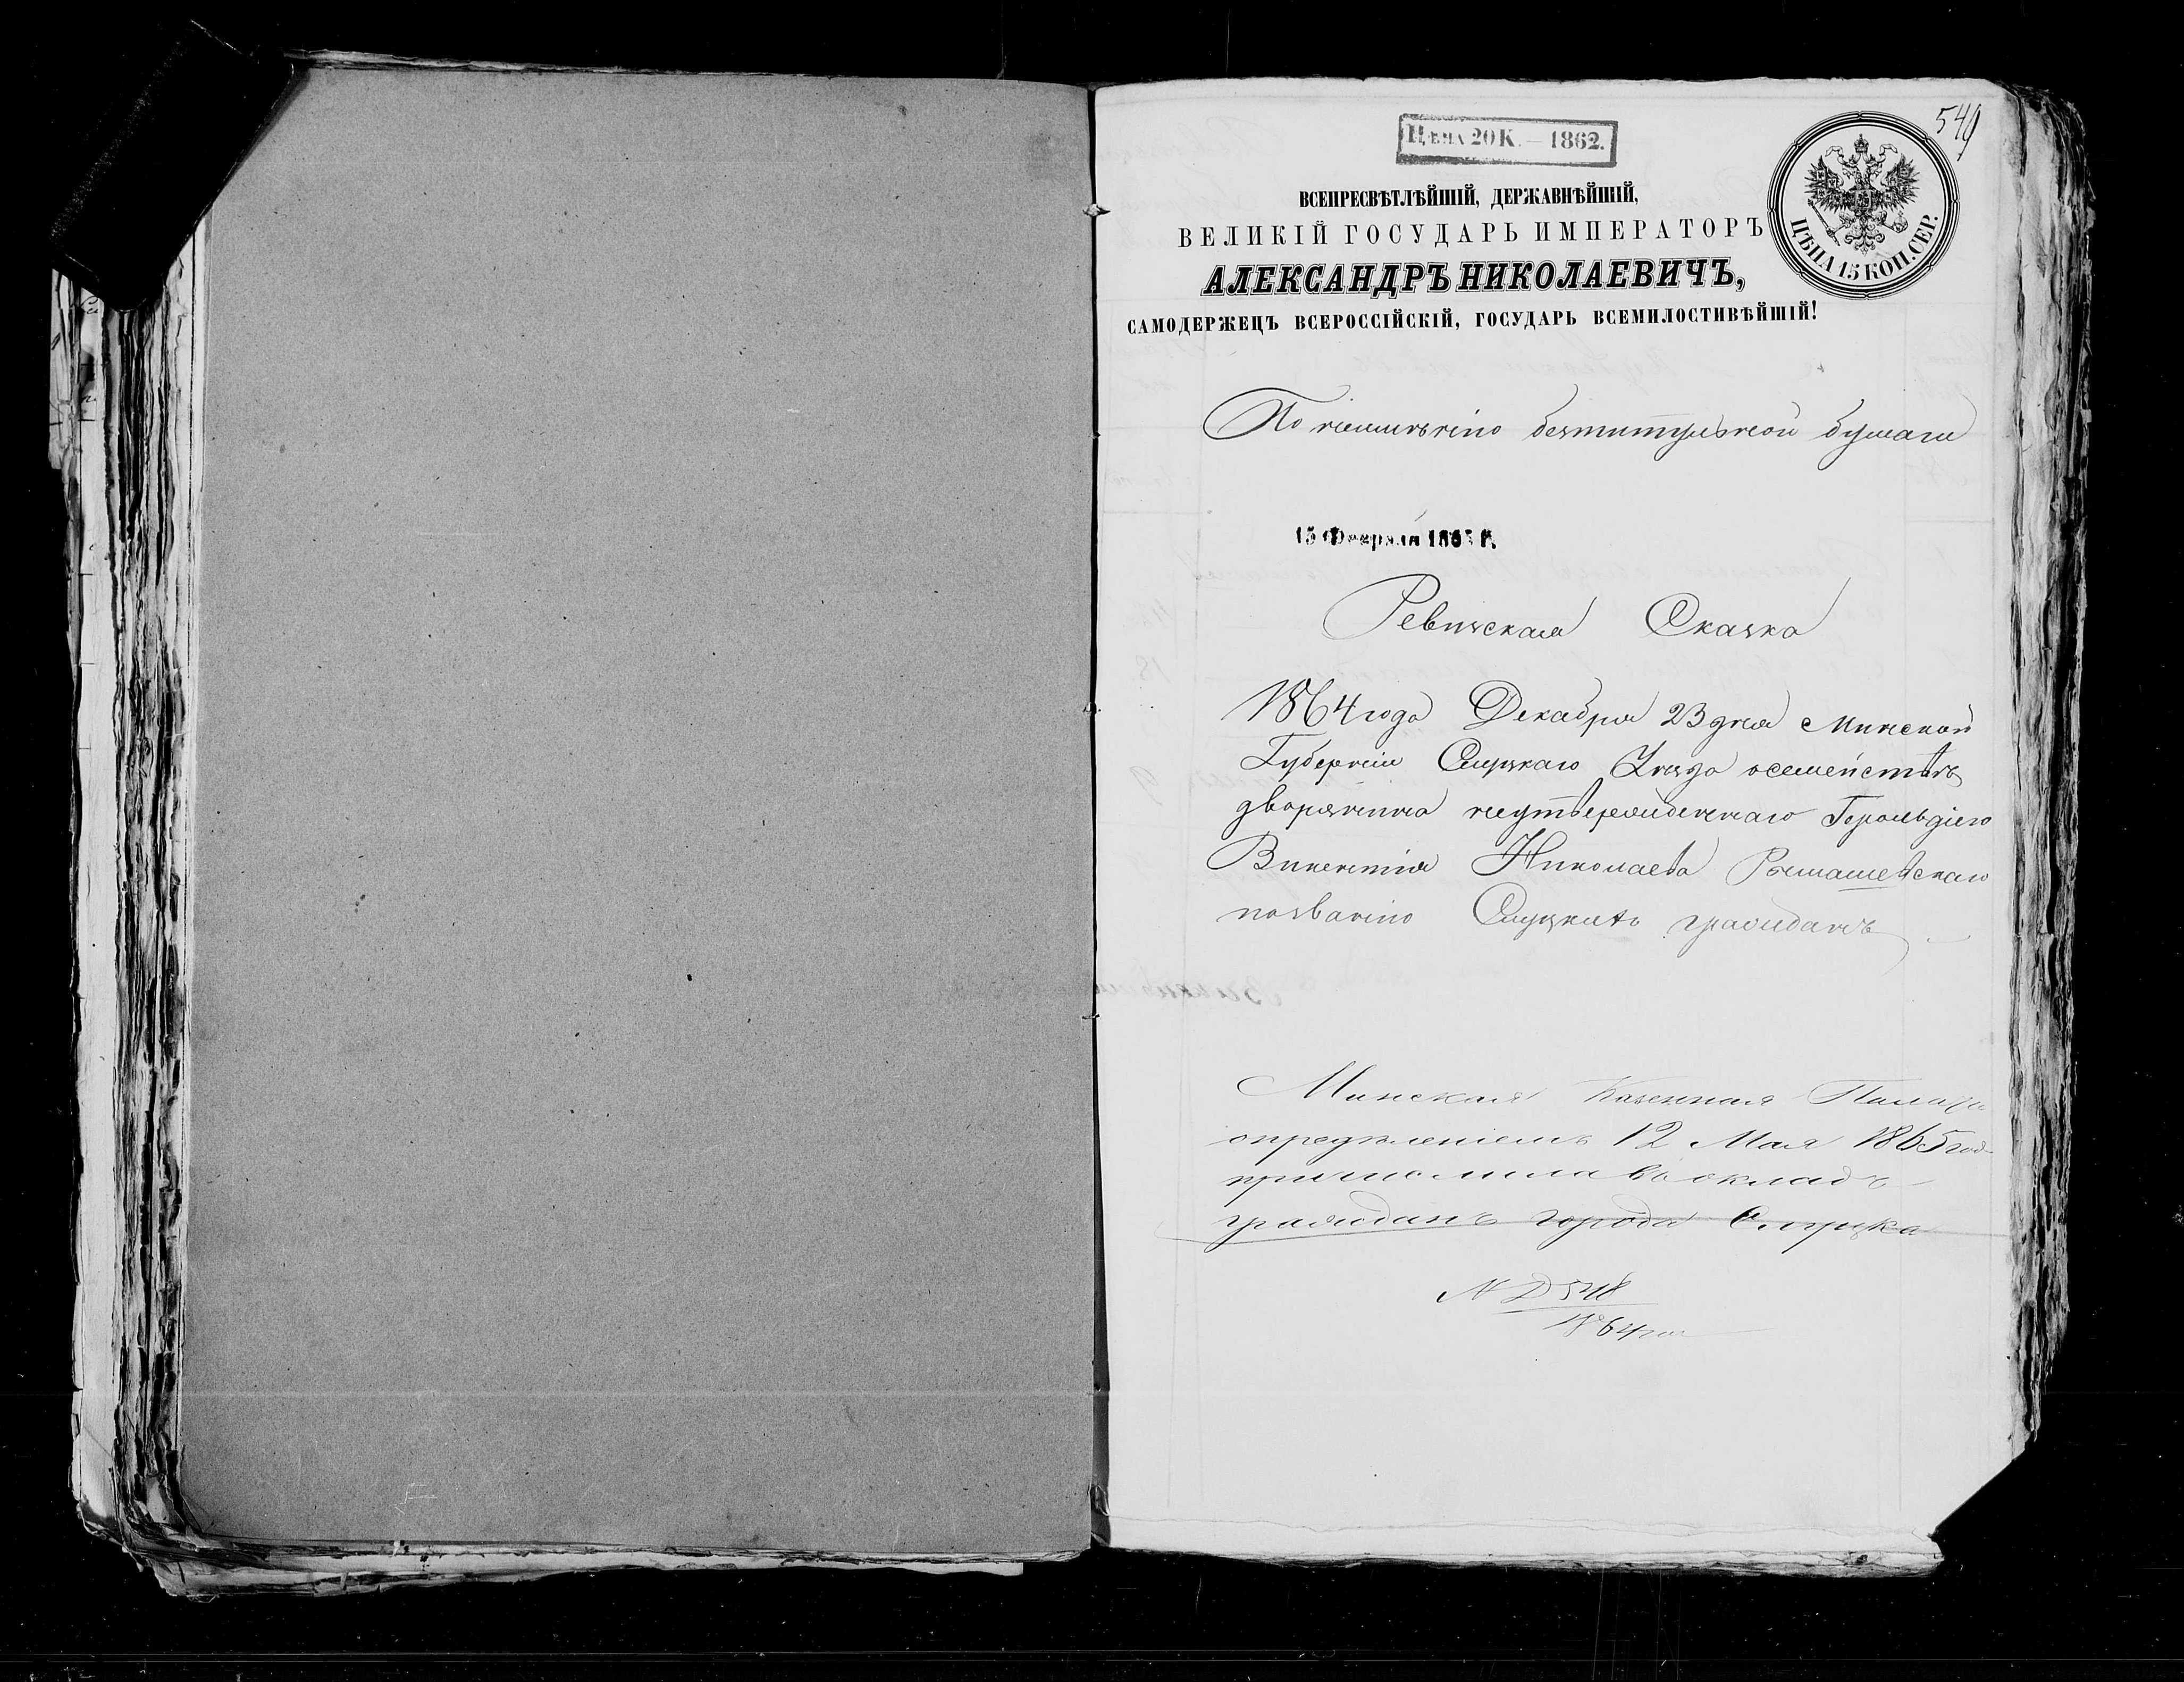 549
Цѣна 20 К. — 1862.
ЦѢНА 15 КОП. СЕР.
ВСЕПРЕСВѢТЛѢЙШІЙ, ДЕРЖАВНѢЙШІЙ,
ВЕЛИКІЙ ГОСУДАРЬ ИМПЕРАТОРЪ
АЛЕКСАНДРЪ НИКОЛАЕВИЧЪ,
САМОДЕРЖЕЦЪ ВСЕРОССІЙСКІЙ, ГОСУДАРЬ ВСЕМИЛОСТИВѢЙШІЙ!
По неимѣнію безтитульной бумаги
15 Февраля 1865 г.
Ревизская Сказка
1864 года Декабря 23 дня Минской
Губерніи Слуцкаго Уѣзда о семействѣ
дворянина неутвержденнаго Герольдіею
Викентія Николаева
по званію Слуцкихъ гражданъ
Минская Казенная Палата
опредѣленіемъ 12 Мая 1865 года
причислила въ окладъ
гражданъ города Слуцка
N Д 548
1864 года